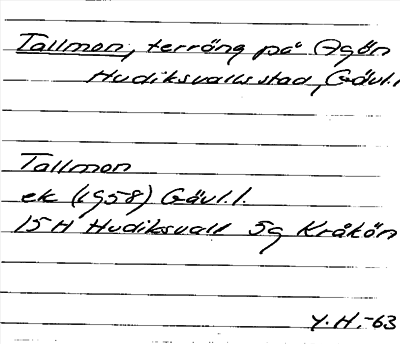 Tallmon, terräng på Agön
Hudiksvalls stad, Gävl.l
Tallmon
ek (1958) Gävl.l.
15H Hudiksvall 5g Kråkön
Y.H.-63